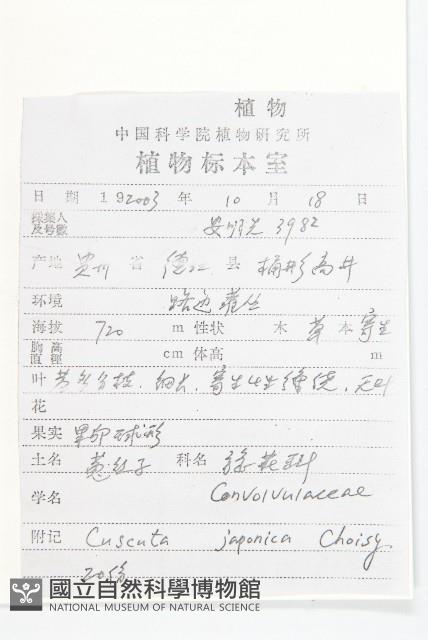 植物
中国科学院植物研究所
植物标本室
日 期 192003 年 10 月 18 日
採集人及号數 安明先 3982
产地 贵州 省 德江 县 桶形高井
环境 路边灌丛
海拔 720 m 性状 木 草 本 寄生
胸高直徑 cm 体高 m
叶 茎多分枝、细长、寄生缠绕、无叶
花
果实 卵球形
土名 科名 旋花科
学名 Convolvulaceae
附记 Cuscuta japonica Choisy.
20份
國立自然科學博物館
NATIONAL MUSEUM OF NATURAL SCIENCE